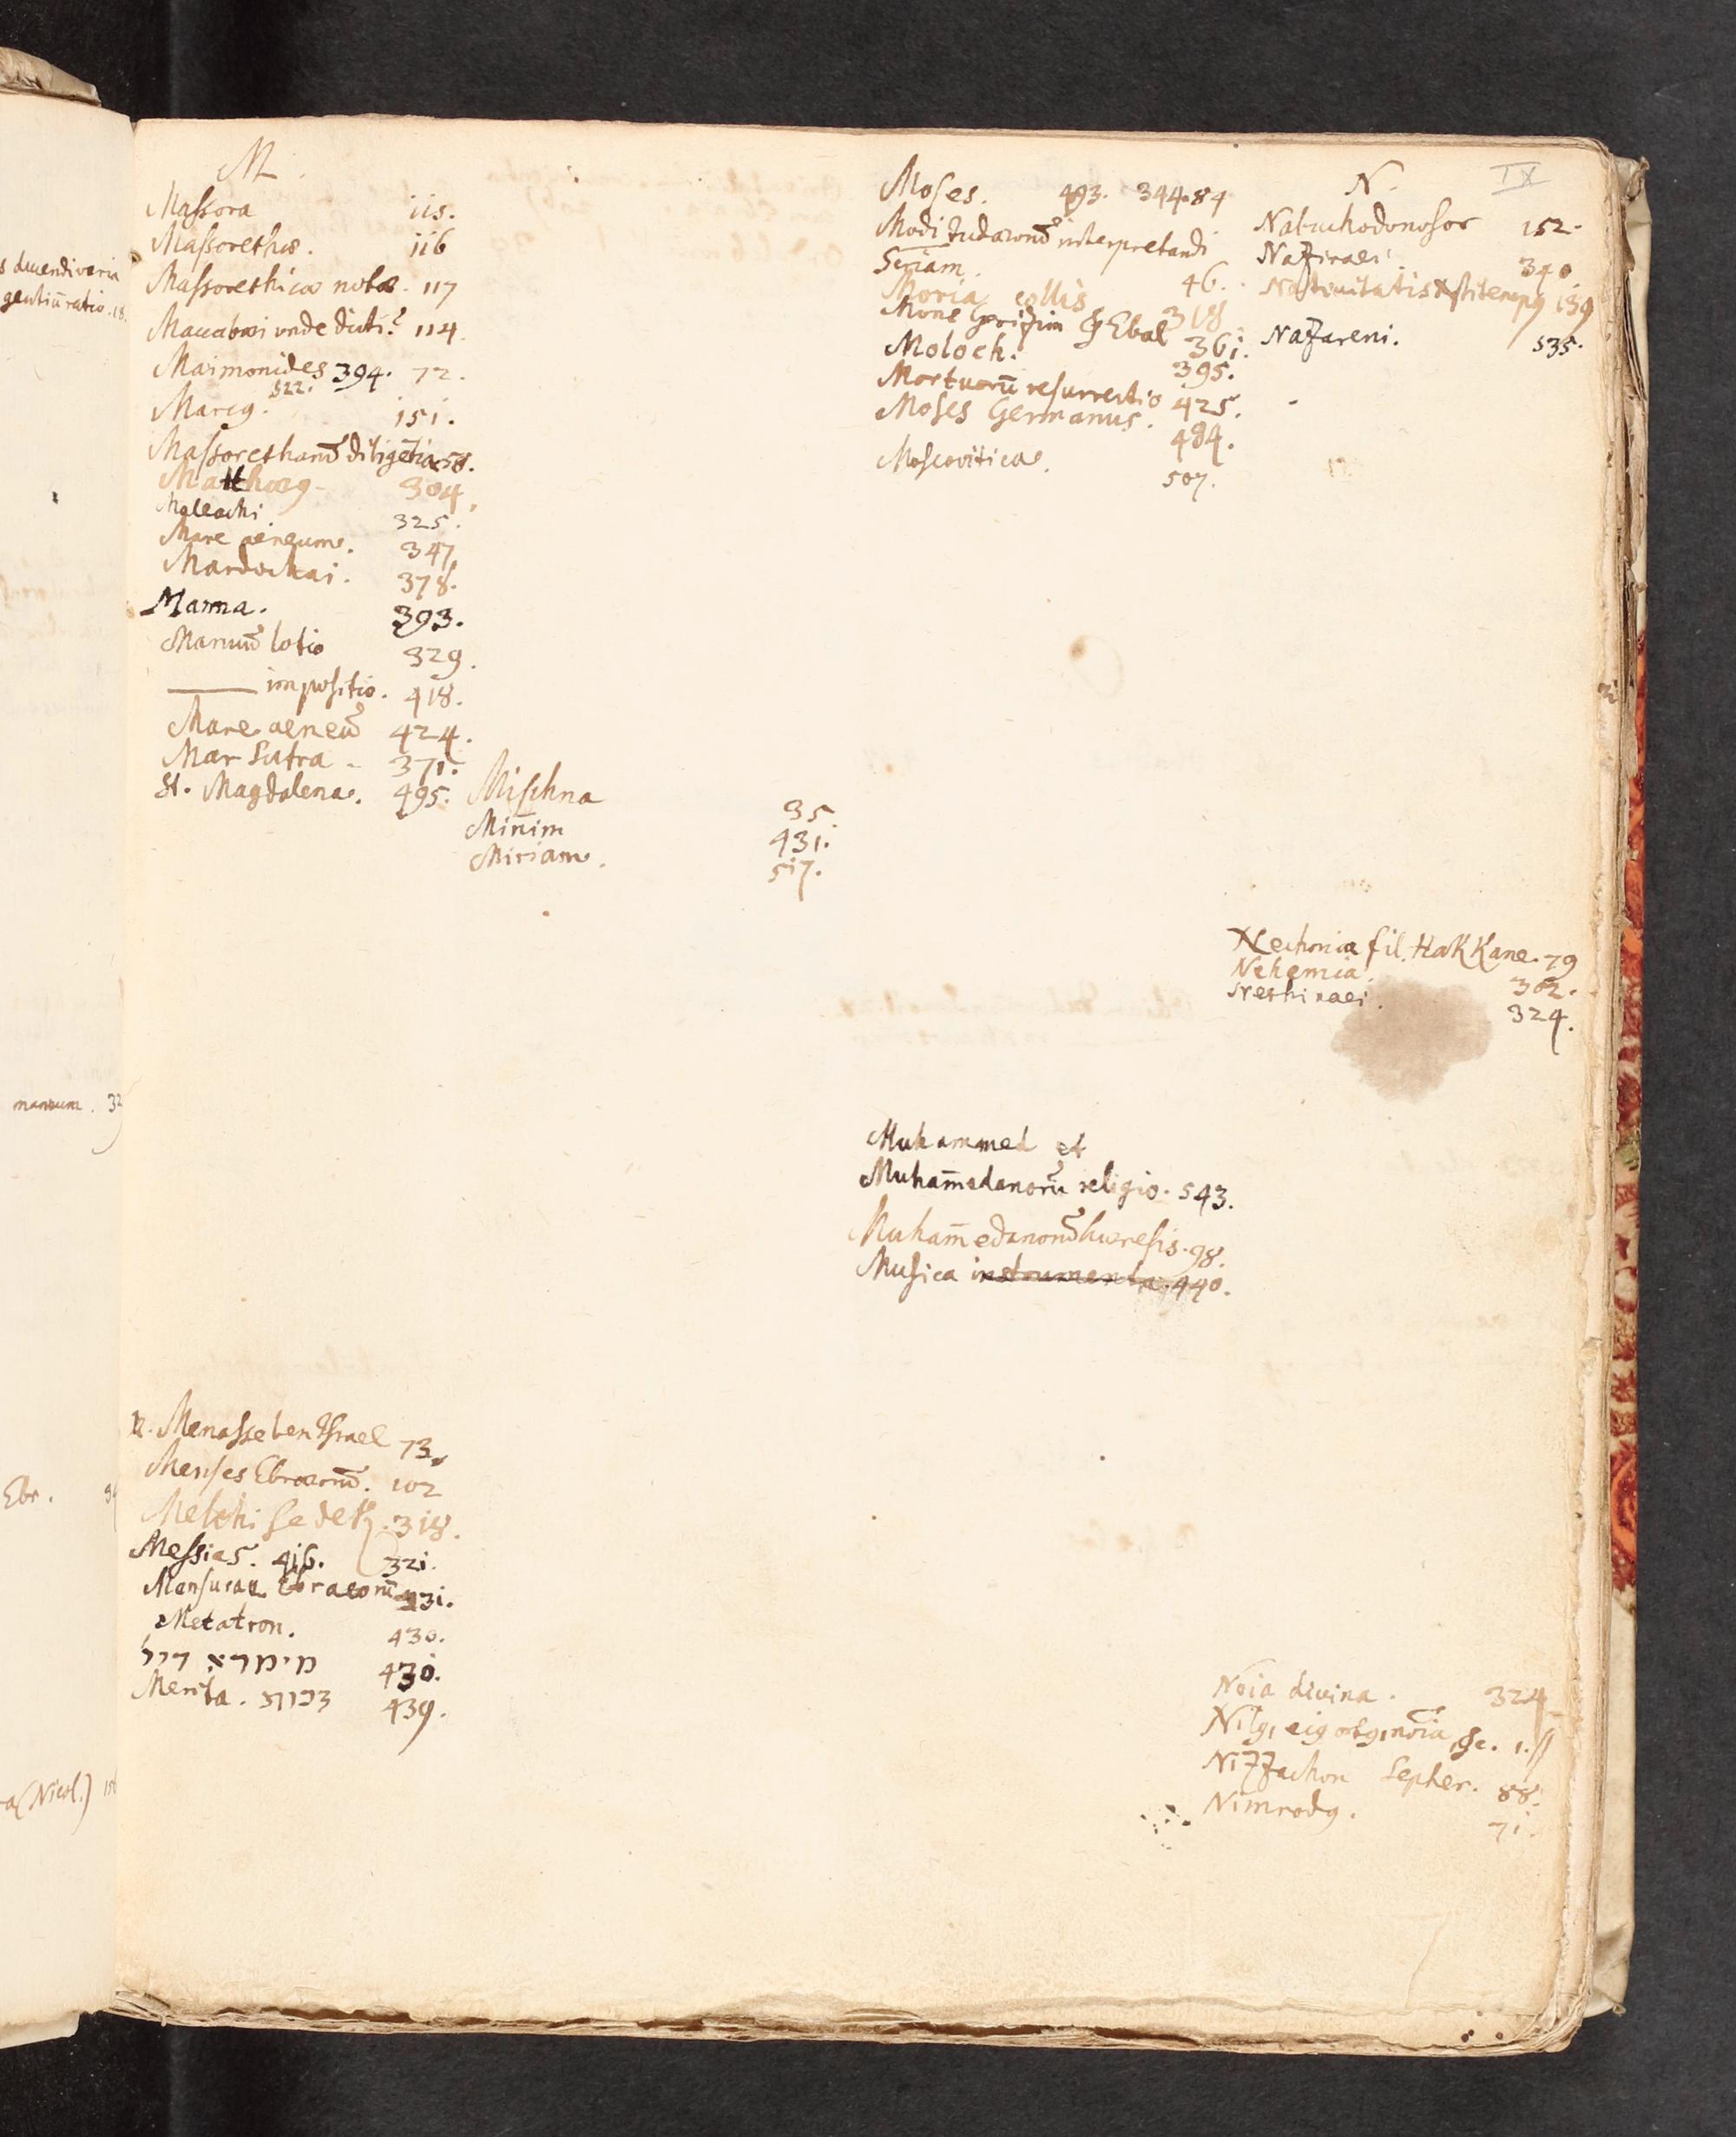 M.
Massora 115.
Massorethæ. 116
Massorethicæ notæ. 117
Maccabæi unde dicti? 114.
Maimonides 394. 72.
522.
Marcꝯ. 151.
Massoretharũ diligẽtia 58.
Matthæꝯ. 304
Maleachi 325.
Mare aeneum. 347
Mardochai. 378.
Manna. 393.
Manuũ lotio 329.
—— impositio. 418.
Mare aeneũ 424.
Mar Sutra 371.
St. Magdalena. 495.
Mischna 35.
Minim 431.
Miriam. 517.
R. Menasse ben Israel 73.
Menses Ebræorũ. 102
Melchisedek. 318.
Messias. 416. 321.
Mensurae Ebraeorũ 431.
Metatron. 430.
מימרא דיי 430.
Merita. זכות 439.
Moses. 493. 344. 84
Modi Judæorũ interpretandi
Scriam. 46.
Moria collis 318
Mons Grizim & Ebal 361.
Moloch. 395.
Mortuorũ resurrectio 425.
Moses Germanus. 484.
Moscoviticae. 507.
Muhammed et
Muham̃edanorũ religio. 543.
Muham̃edanorũ hæresis. 98.
Musica instrumenta. 440.
N.
IX
Nabuchodonosor 152.
Naziraei. 340.
Nativitatis Xsti tempꝯ 139
Nazareni. 535.
Nechonia fil. HakKane. 79
Nehemia. 362.
Nethinaei. 324.
Noĩa divina. 324
Nilꝯ, eiꝯ ortꝯ, noĩa, &c. 1.
Nizzachon Sepher. 88.
Nimrodꝯ. 71.
gentiũ ratio. 18.
manuum. 32
Ebr.
(Nicol.)